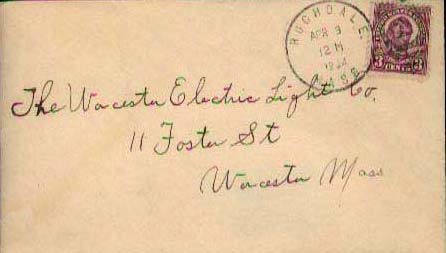 ROCHDALE
APR 9
12 M
1934
MASS
3 CENTS 3
The Worcester Electric Light Co.
11 Foster St
Worcester Mass